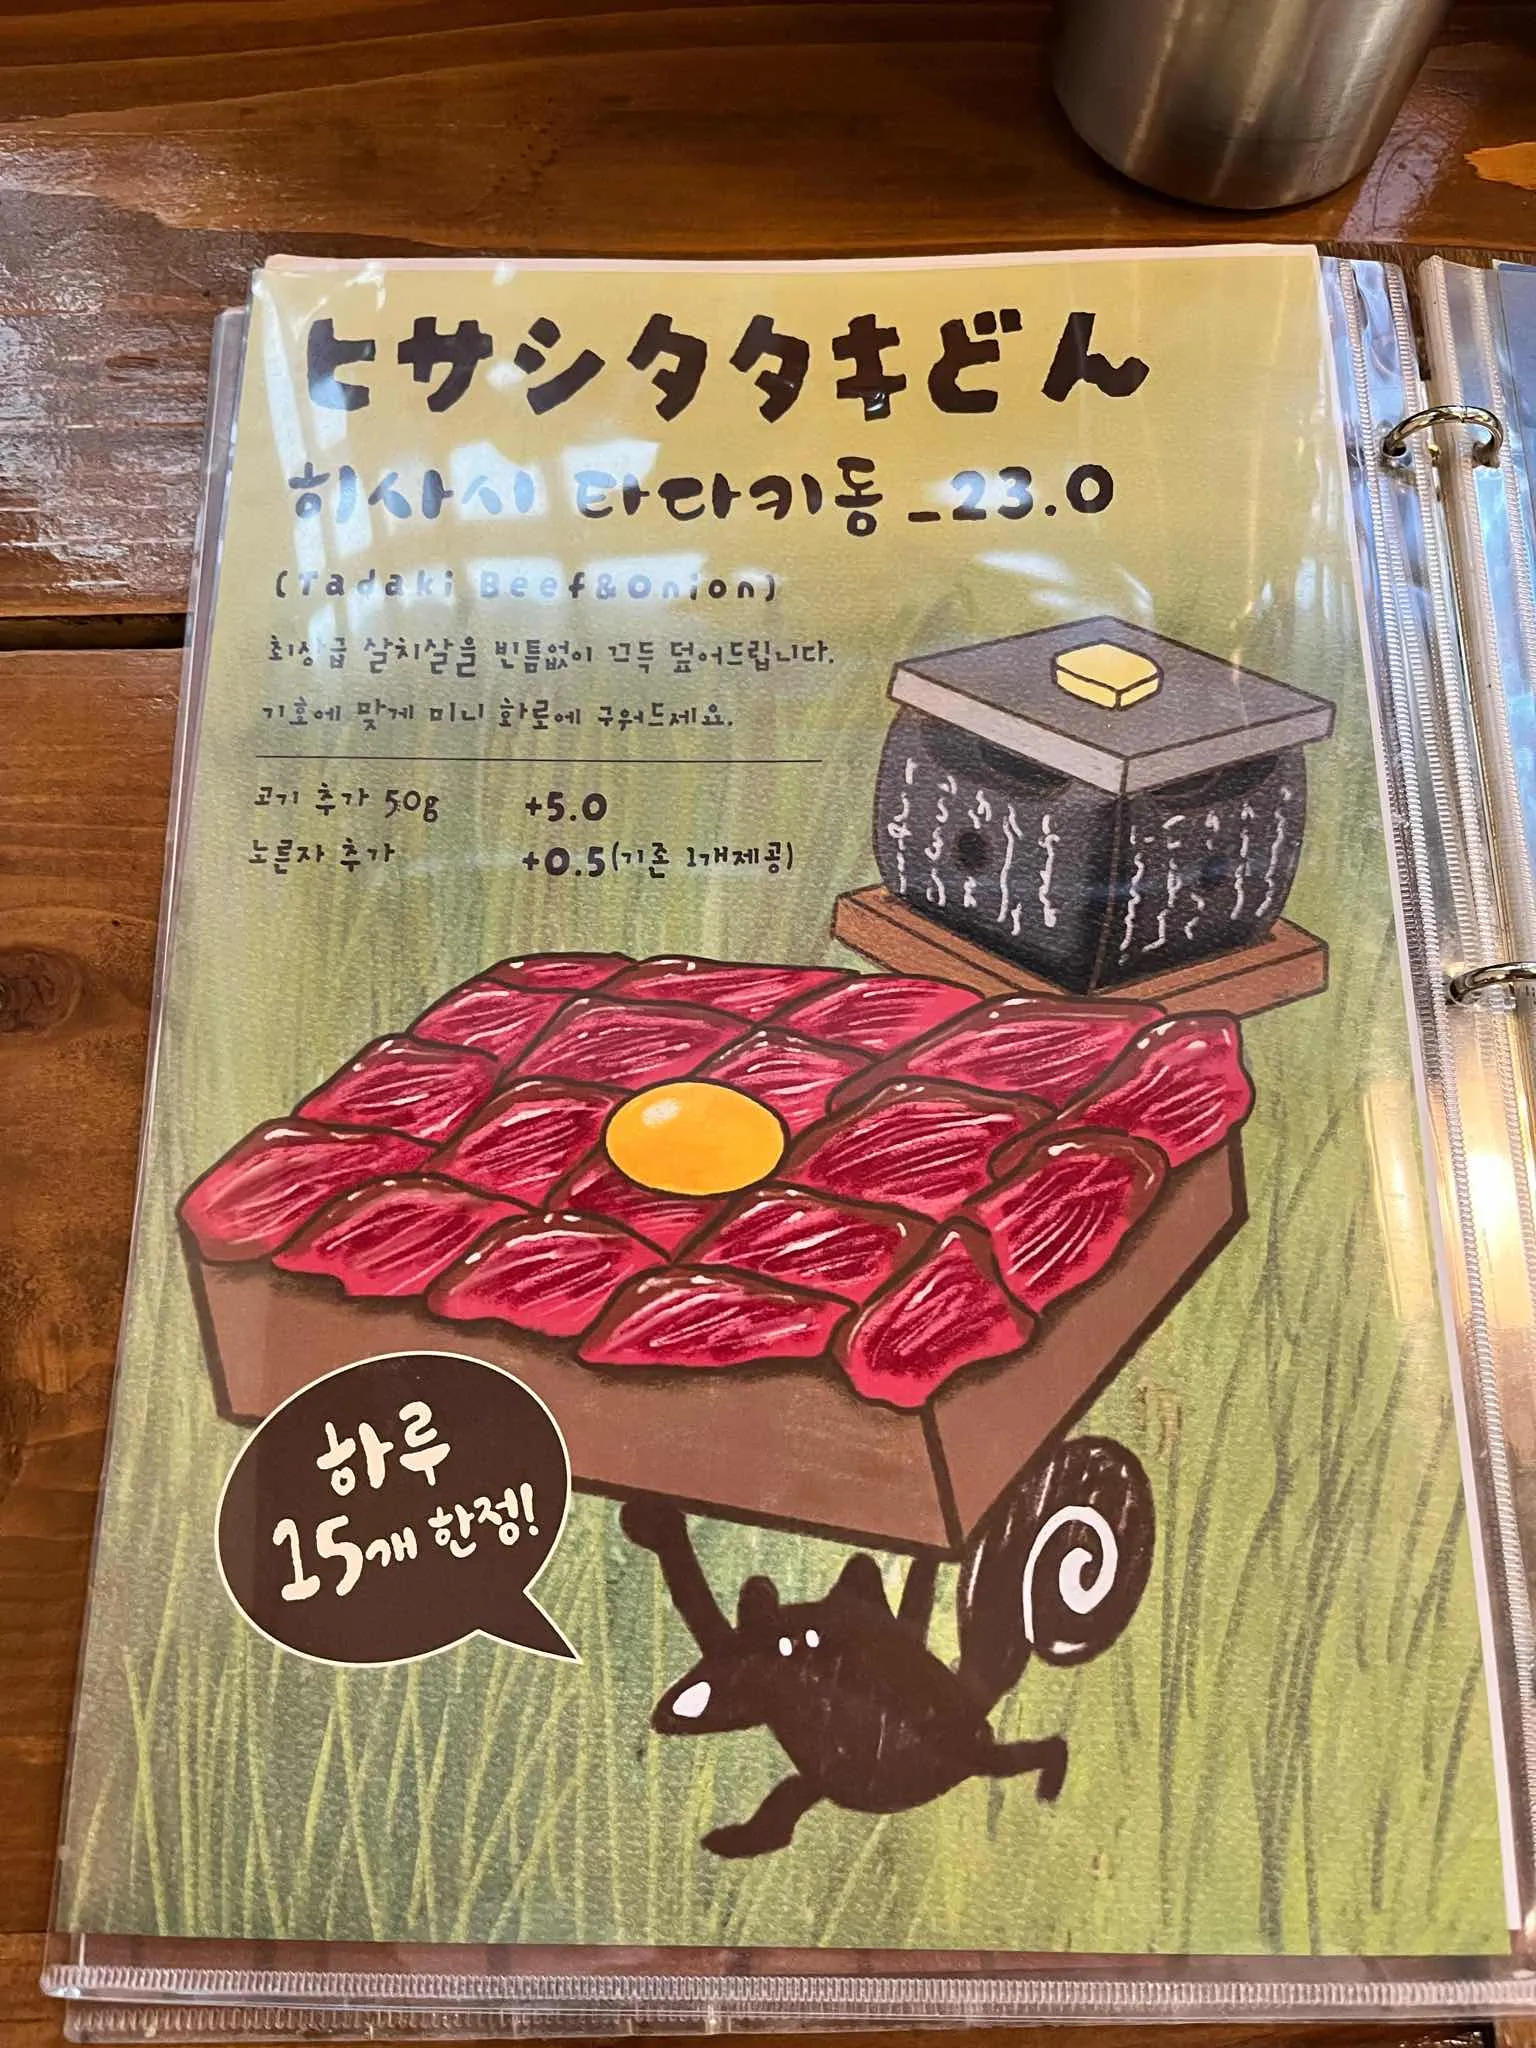 ヒサシタタキどん
히사시 타다키동 _23.0
(Tadaki Beef&Onion)
최상급 살치살을 빈틈없이 끄득 덮어드립니다.
기호에 맞게 미니 화로에 구워드세요.
고기 추가 50g +5.0
노른자 추가 +0.5(기존 1개제공)
하루
15개 한정!